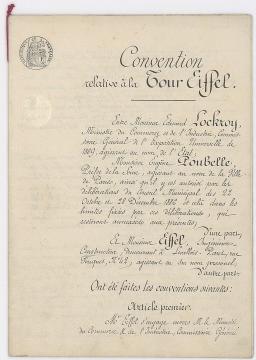 Convention
relative à la Tour Eiffel.
Entre Monsieur Edouard Lockroy,
Ministre du Commerce et de l'Industrie, Commis-
saire Général de l'Exposition Universelle de
1889, agissant au nom de l'État,
Monsieur Eugène Poubelle,
Préfet de la Seine, agissant au nom de la Ville
de Paris, ainsi qu'il y est autorisé par les
délibérations du Conseil Municipal des 22
Octobre et 28 Décembre 1886 et cela dans les
limites fixées par ces délibérations, qui
resteront annexées aux présentes;
D'une part,
Et Monsieur Eiffel, Ingénieur-
Constructeur, demeurant à Levallois-Perret, rue
Fouquet, N° 42, agissant en son nom personnel,
D'autre part.
Ont été faites les conventions suivantes:
Article premier.
Mr Eiffel s'engage envers M. le Ministre
du Commerce & de l'Industrie, Commissaire Général